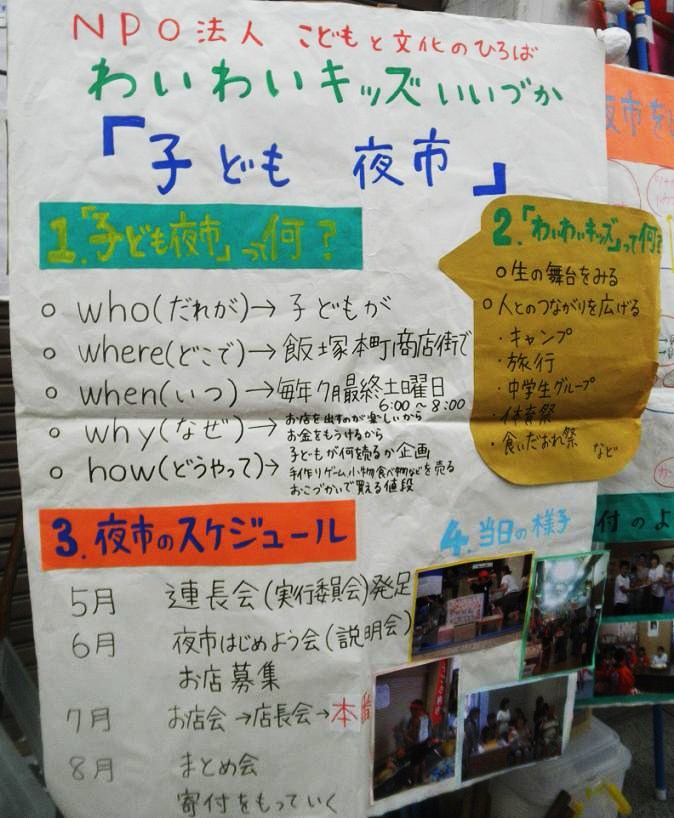 NPO法人 こどもと文化のひろば
わいわいキッズいいづか
「子ども 夜市」
1.「子ども夜市」って何?
○ who(だれが)→ 子どもが
○ where(どこで)→ 飯塚本町商店街で
○ when(いつ)→ 毎年7月最終土曜日
6:00〜8:00
○ why(なぜ)→ お店を出すのが楽しいから
お金をもうけるから
○ how(どうやって)→ 子どもが何を売るか企画
手作りゲーム小物食べ物などを売る
おこづかいで買える値段
2.「わいわいキッズ」って何?
○生の舞台をみる
○人とのつながりを広げる
・キャンプ
・旅行
・中学生グループ
・体育祭
・食いだおれ祭 など
3.夜市のスケジュール
5月 連長会(実行委員会)発足
6月 夜市はじめよう会(説明会)
お店募集
7月 お店会→店長会→本
8月 まとめ会
寄付をもっていく
4.当日の様子
夜市を
付のよ